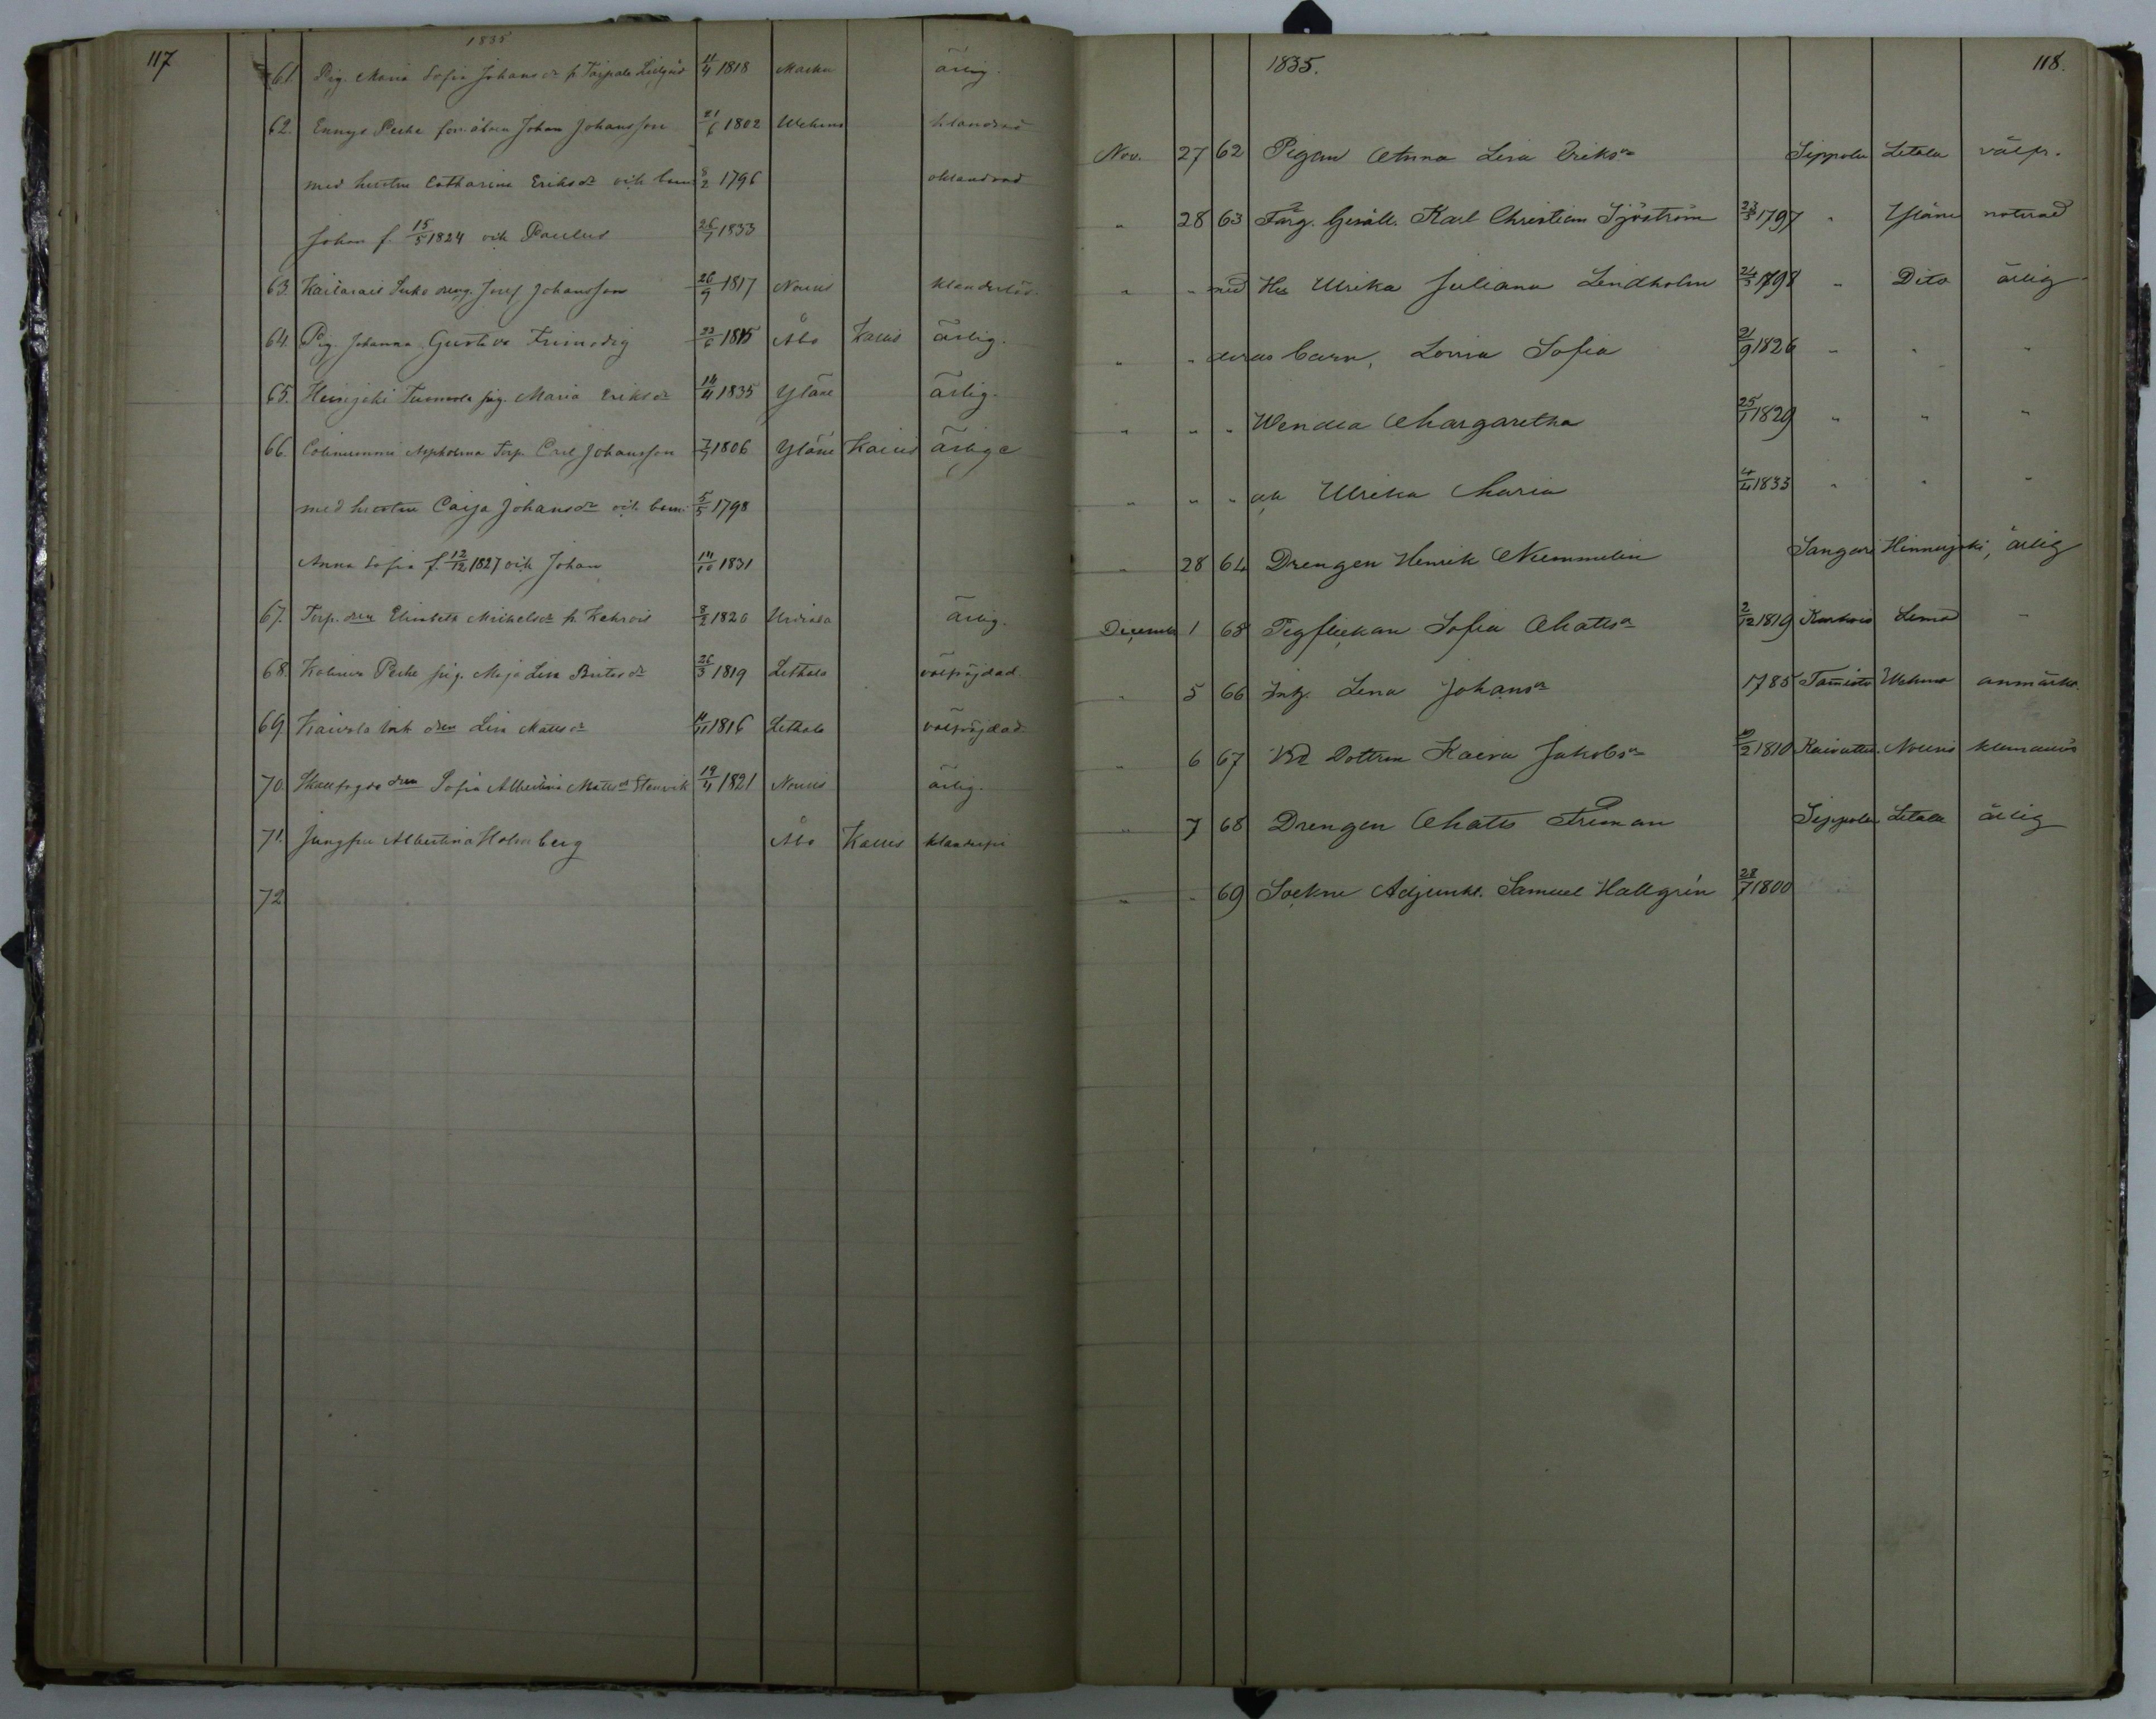 117
1835
61. Pig. Maria Sofia Johansdr fr. Taipale 11/4 1818 Masku ärlig.
62. Ennys Perho Johan Johansson 21/6 1802 Wehmo klandrad
med hustru Catharina Eriksdr och barn 8/2 1796 oklandrad
Johan f. 15/5 1824 och Paulus 26/7 1833
63. Kailarais dreng. Josef Johansson 26/9 1817 Nousis klanderlös.
64. Pig. Johanna Gustava Frimodig 23/6 1815 Åbo Karris ärlig.
65. Heinijoki Tuomola pig. Maria Eriksdr 14/4 1835 Yläne ärlig.
66. Torp. Carl Johansson 7/7 1806 Yläne Karris ärliga
med hustru Caisa Johansdr och barn 5/5 1798
Anna Sofia f. 12/12 1827 och Johan 14/10 1831
67. Torp. dren Elisabeth Mickelsdr fr. Kehrois 8/2 1820 Urdiala ärlig.
68. Perho pig. Maja Lisa Britasdr 26/3 1819 Lethala välfrejdad.
69. Kaivola Ink dren Lisa Mattsdr 11/11 1816 Lethala välfrejdad.
70. Skallfogds dren Sofia Albertina Mattsdr Stenvik 19/4 1821 Nousis ärlig.
71. Jungfru Albertina Holmberg Åbo Karris klanderfri
72
1835.
118.
Nov. 27 62 Pigan Anna Lisa Eriksdr Seppola Letala välfr.
" 28 63 Färg. Gesäll. Karl Christian Sjöström 23/5 1797 " Yläne noterad
" " med Hu Ulrika Juliana Lindholm 24/5 1798 " Dito ärlig
" " deras barn, Lovisa Sofia 21/9 1826 " " "
" " " Wendla Margaretha 25/1 1829 " " "
" " " och Ulrika Maria 4/4 1833 " " "
" 28 64 Drengen Henrik Nummelin Hinnerjoki, ärlig
December 1 65 Pigflickan Sofia Mattsdr 2/12 1819 Lemo "
" 5 66 Inh. Lena Johansdr 1785 Wehmo anmärkn.
" 6 67 Bd Dottren Kaisa Jakobsdr 1810 Nousis
" 7 68 Drengen Matts Friman Seppola Letala ärlig
" " 69 Sockne Adjunkt. Samuel Hallgrén 28/7 1800